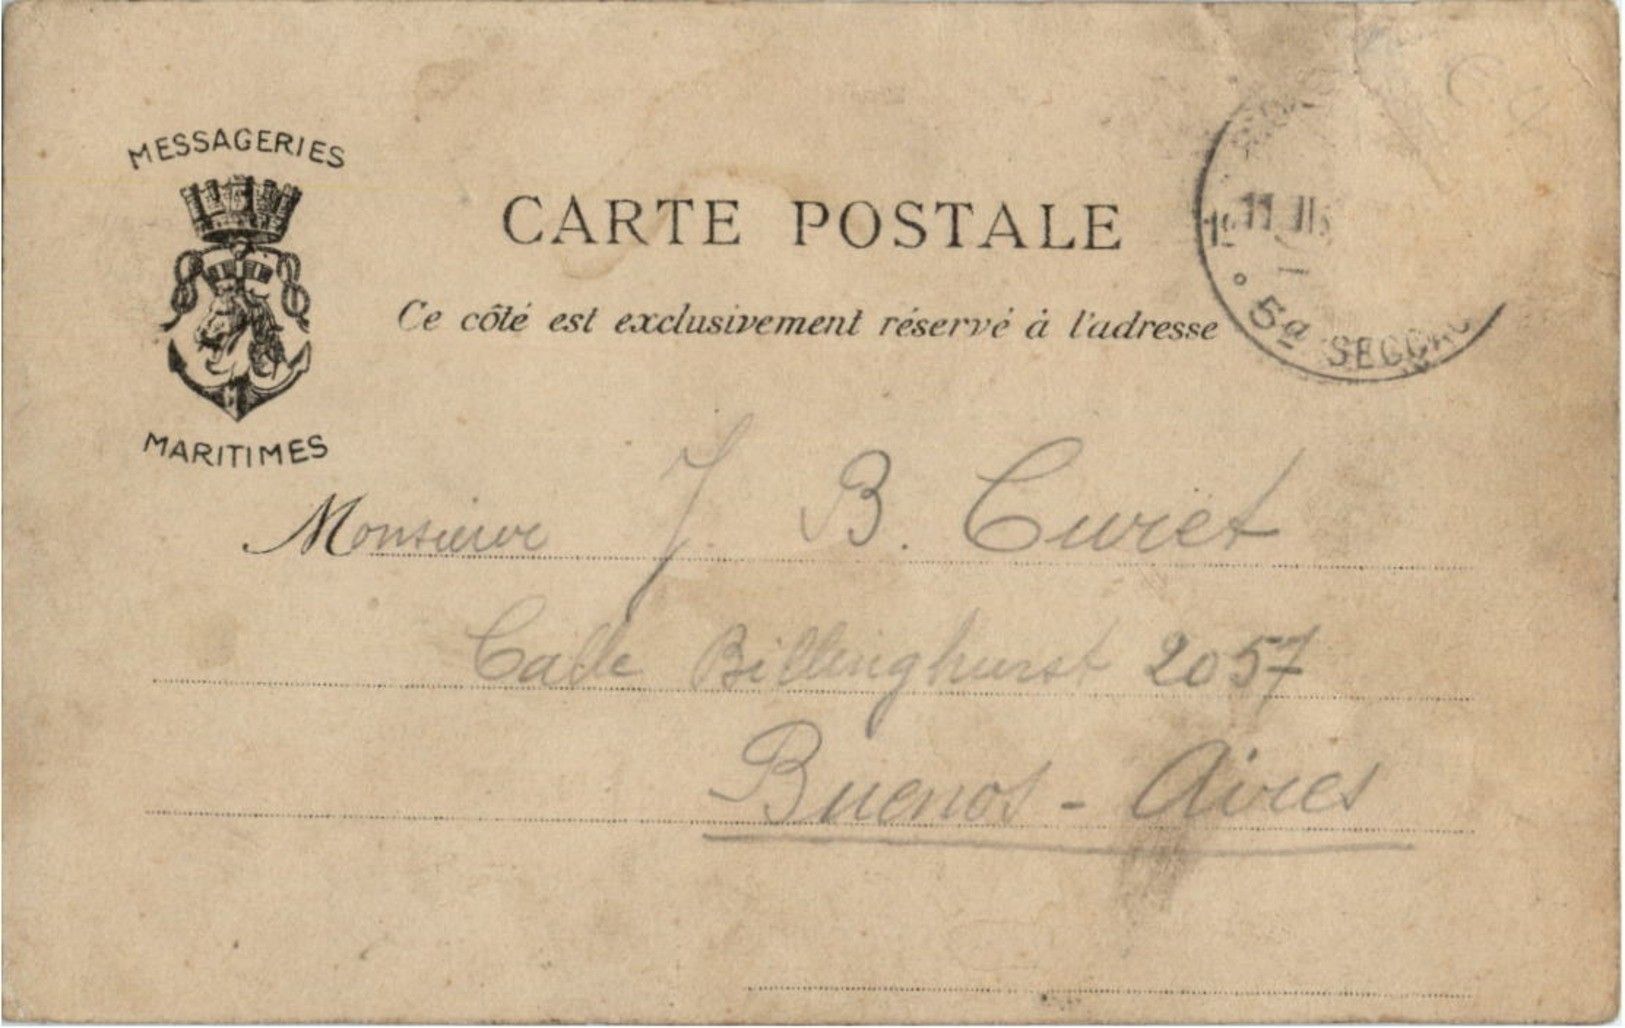 MESSAGERIES
MARITIMES
CARTE POSTALE
Ce côté est exclusivement réservé à l'adresse
11 II
5a SECC
Monsieur J. B. Curet
Calle Billinghurst 2057
Buenos - Aires